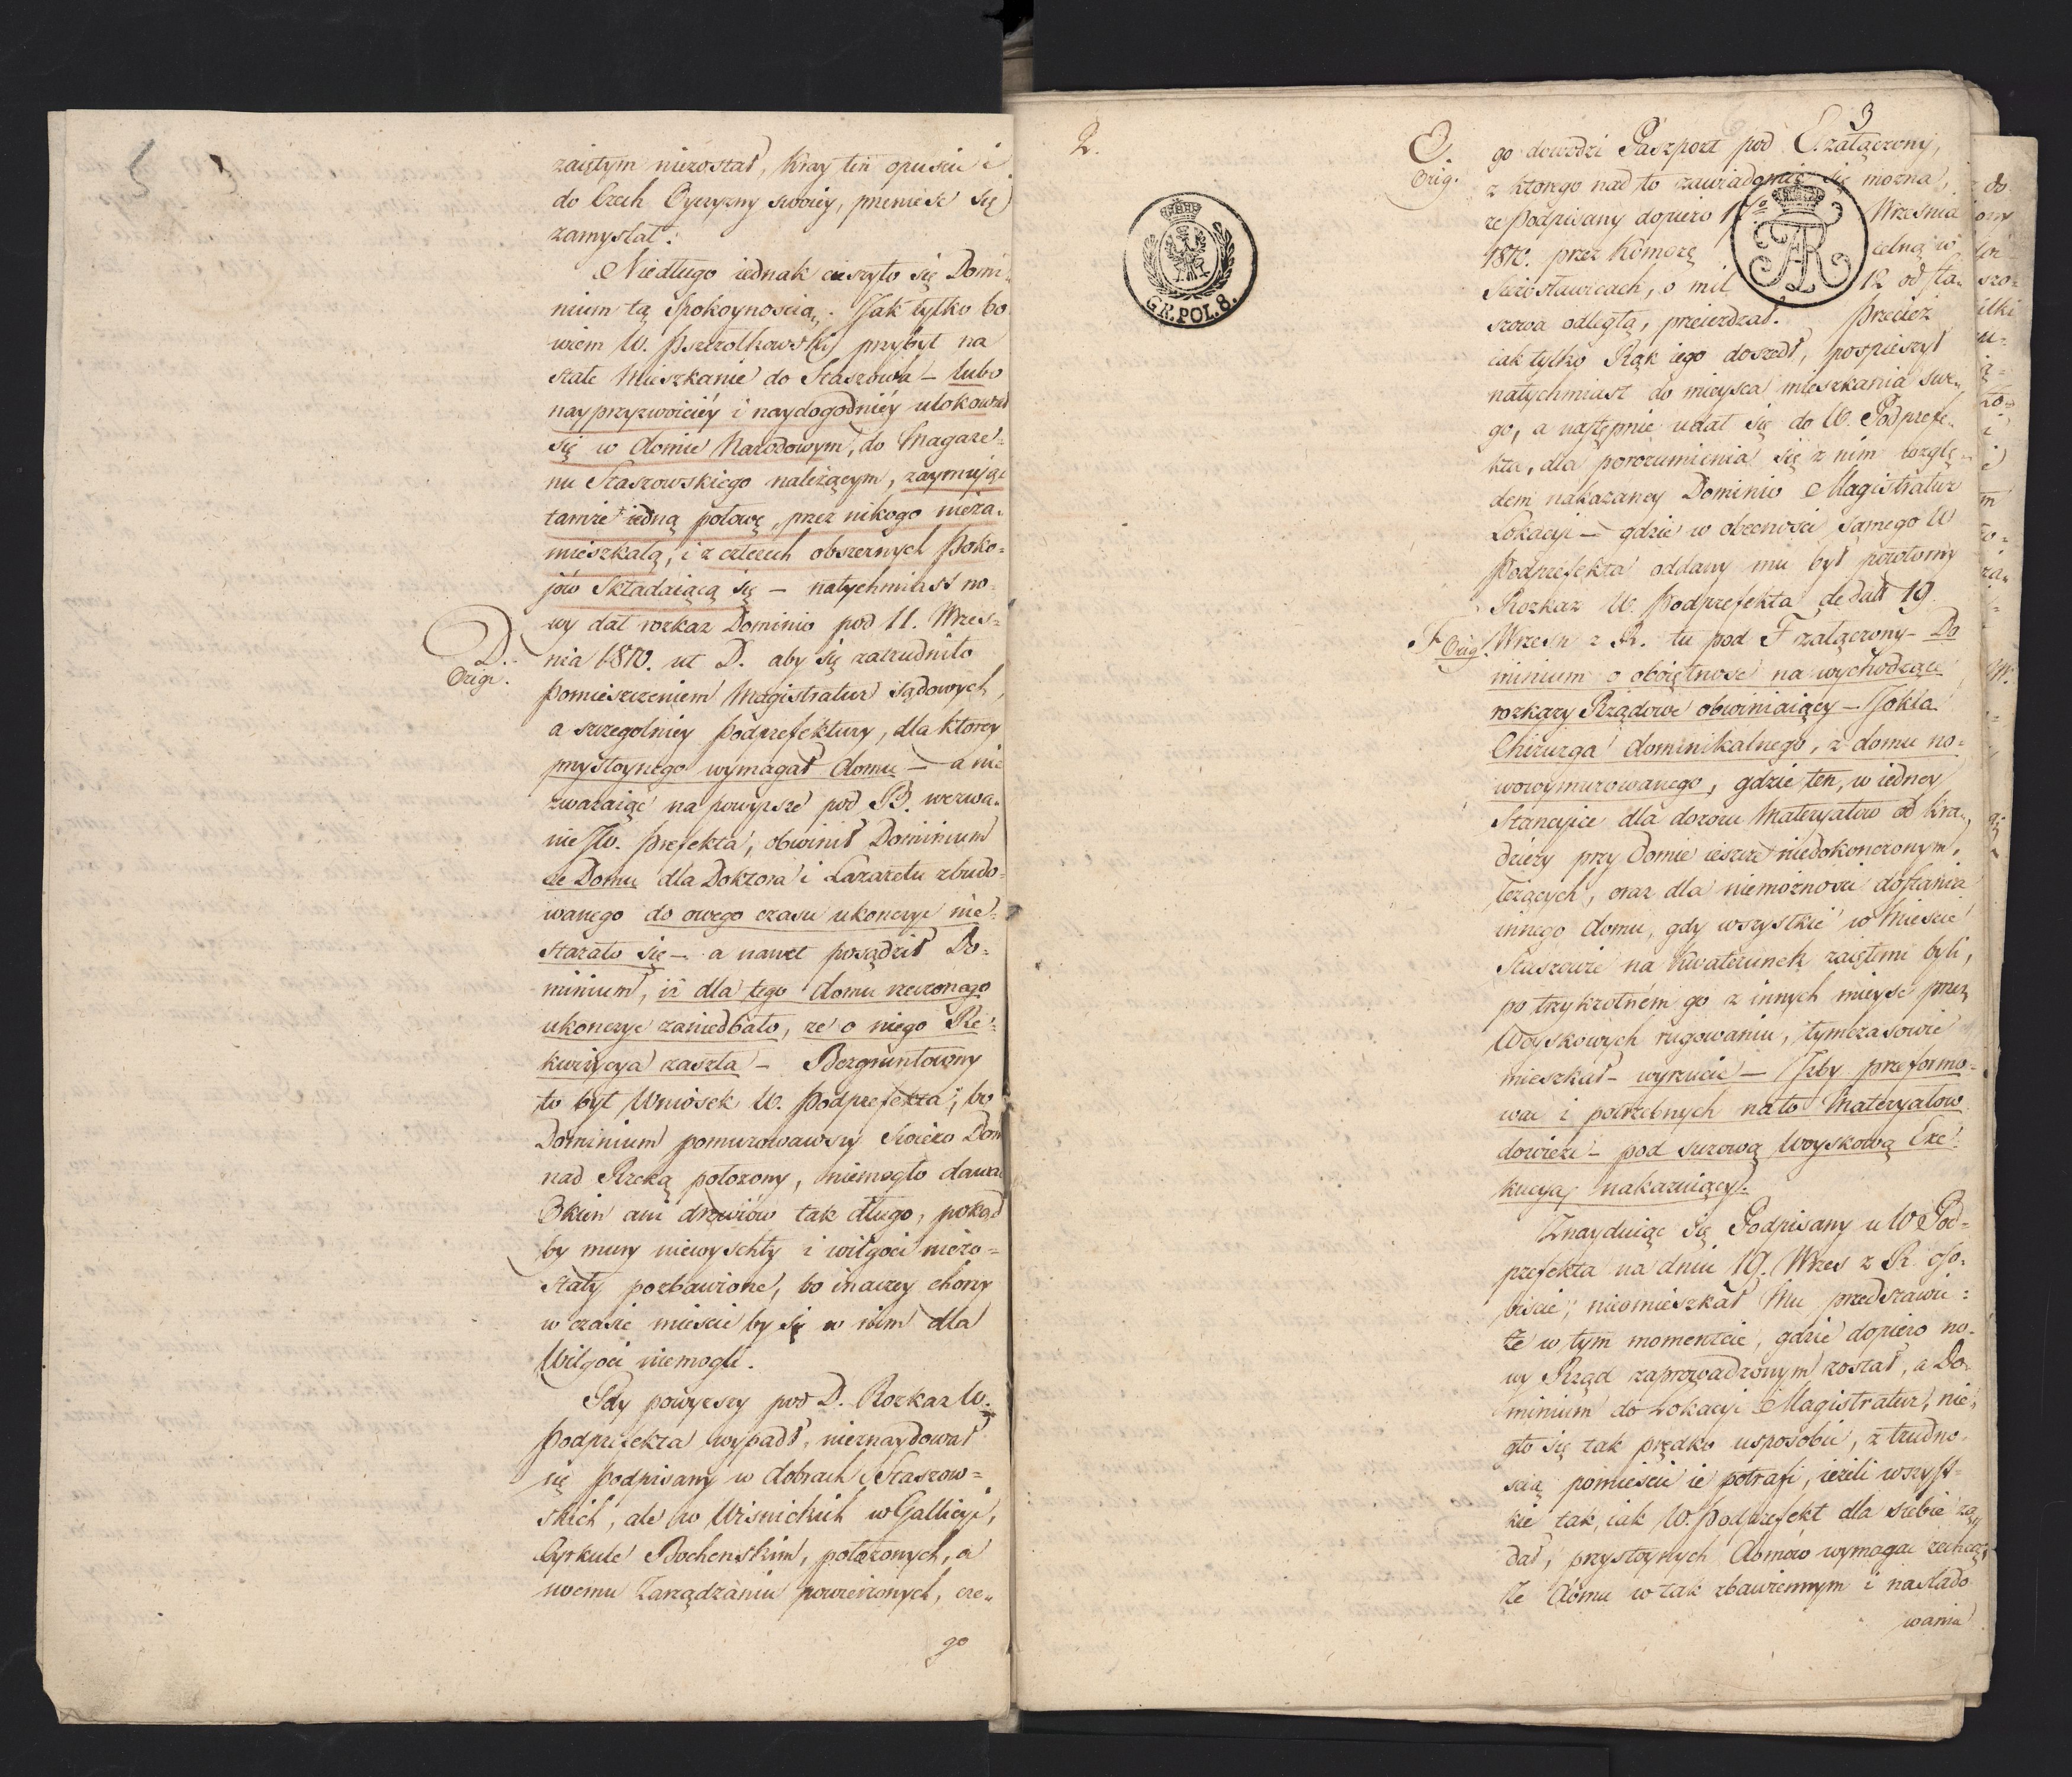 zaiętym niezostał, kray ten opuścić i
do Czech Oyczyzny swoiey, przenieść się
zamyślał.
Niedługo iednak cieszyło się Domi-
nium tą Spokoynością. Jak tylko bo
wiem W. Pszczołkowski przybył na
stałe Mieszkanie do Staszowa – lubo
nayprzyzwoiciéy i naydogodniéy ulokował
się w domie Narodowym, do Magaze=
nu Staszowskiego należącym, zaymuiąc
tamże iedną połowę, przez nikogo nieza-
mieszkałą, i z czterech obszernych Poko=
jów składaiącą się – natychmiast no-
wy dał rozkaz Dominio pod 11. Wrześ=
D.
Orig.
nia 1810. ut D. aby się zatrudniło
pomieszczeniem Magistratur sądowych,
a szczegolniey Podprefektury, dla ktorey
przystoynego wymagał domu – a nie
zwazaiąc na powyższe pod B. wezwa-
nie JW. Prefekta, obwinił Dominium
że Domu dla Doktora i Lazaretu zbudo=
wanego do owego czasu ukonczyć nie=
starało się – a nawet posądził Do=
minium, iż dla tego domu rzeczonego
ukonczyć zaniedbało, ze o niego Re=
kwizycya zaszła – Bezgruntowny
to był Wniosek W. Podprefekta, bo
Dominium pomurowawszy świeżo Dom
nad Rzeką położony, niemogło dawać
Okien ani drzwiów tak długo, pokąd
by mury niewyschły i wilgoci niezo=
stały pozbawione, bo inaczey chorzy
w czasie mieścić by się w nim dla
Wilgoci niemogli.
Gdy powyższy pod D. Rozkaz W.
Podprefekta wypadł, nieznaydował
się Podpisany w dobrach Staszow=
skich, ale w Wiśnickich w Gallicyi,
Cyrkule Bochenskim, położonych, a
swemu Zarządzaniu powierzonych, cze-
go
2.
3
GR.POL.8.
E.
Orig.
go dowodzi Paszport pod E załączony,
z ktorego nad to zawiadomić się można,
ze Podpisany dopiero Września
1810. przez Komorę celną w
Sierosławicach, o mil 12 od Sta-
szowa odległą, przeiezdzał. Przecież
iak tylko Rąk iego doszedł, pospieszył
natychmiast do mieysca mieszkania swe-
go, a następnie udał się do W. Podprefe-
kta, dla porozumienia się z nim wzglę-
dem nakazaney Dominio Magistratur
Lokacyi – gdzie w obecności samego W
Podprefekta oddany mu był powtorny
Rozkaz W. Podprefekta de dato 19.
F Orig.
Wrześn z R. tu pod F załączony – Do
minium o oboiętność na wychodzące
rozkazy Rządowe obwiniaiący – Jokla
Chirurga dominikalnego, z domu no=
wowymurowanego, gdzie ten, w iedney
Stancyice dla dozoru Materyałow od kra-
dzieży przy Domie ieszcze niedokonczonym,
leżących, oraz dla niemożności dostania
innego domu, gdy wszystkie w Mieście
Staszowie na kwaterunek zaiętemi byli,
po trzykrotném go z innych mieysc przez
Woyskowych rugowaniu, tymczasowie
mieszkał – wyrzucić – Izby przeformo=
wać i potrzebnych na to Materyałow
dowieźć – pod surową Woyskową Exe=
kucyą nakazuiący.
Znayduiąc się Podpisany u W Pod=
prefekta na dniu 19. Wrześ z R. oso-
biście, nieomieszkał Mu przedstawić:
że w tym momencie, gdzie dopiero no-
wy Rząd zaprowadzonym został, a Do-
minium do Lokacyi Magistratur, nie-
gło się tak prędko usposobić, z trudno-
scią pomieścić ie potrafi, ieżeli wszyst-
kie tak, iak W. Podprefekt dla siebie żą
dał, przystoynych domów wymagać zechcą
że domu w tak zbawiennym i naślado
wania